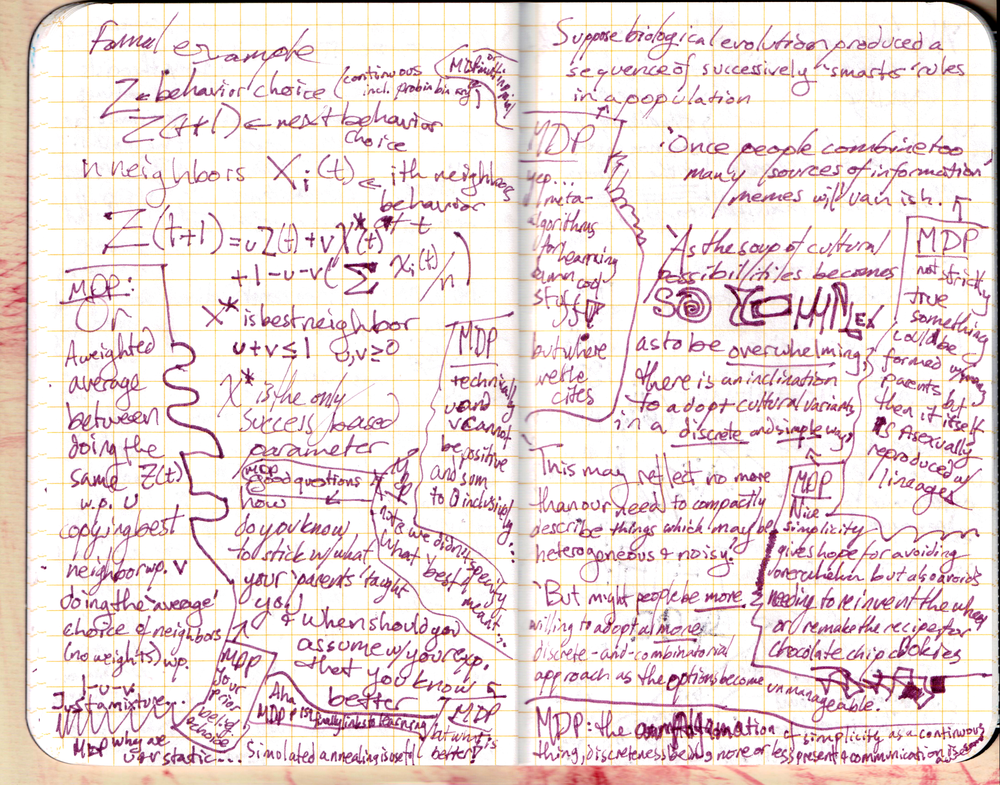 Formal example
Z ← behavior choice (continuous
incl. prob in bin any)
Z(t+1) ← next behavior
choice
n neighbors Xi(t) ← ith neighbors
behavior
Z(t+1) = uZ(t) + vX*(t)
+ 1-u-v(∑ Xi(t)/n)
X* is best neighbor
u+v≤1 u,v≥0
X* is the only
success based
parameter
MDP:
Or
A weighted
average
between
doing the
same Z(t)
w.p. u
copying best
neighbor wp. v
doing the 'average'
choice of neighbors
(no weights) wp.
1-u-v.
Just a mixture...
MDP why are
u & v static...
MDP
technically
u and
v cannot
be positive
and sum
to 0 inclusively...
MDP
Good questions
how
do you know
to stick w/ what
your parents taught
you & when should you
assume w/ your exp.
that you know
better
note we didn't specify
what best
meant...
MDP
your
prior
belief
choice
Aha
MDP finally links to learning
MDP
at what is
better?
Simulated annealing is useful
Suppose biological evolution produced a
sequence of successively "smarter" rules
in a population
MDP
yep...
meta-
algorithms
for learning
human cool
stuff
but where
are the
cites
'Once people combine too
many sources of information'
memes will vanish.
MDP
not strictly
true
something
could be
formed w/ many
parents but
then it itself
is Asexually
reproduced w/
lineages
'As the soup of cultural
possibilities becomes
SO
as to be overwhelming,
there is an inclination
to adopt cultural variants
in a discrete and simple way'
'This may reflect no more
than our need to compactly
describe things which may be
heterogeneous & noisy.'
MDP
Nice
simplicity
gives hope for avoiding
but also avoids
needing to reinvent the wheel
or remake the recipe for
chocolate chip cookies
'But might people be more
willing to adopt a more
discrete-and-combinatorial
approach as the options become
unmanageable.'
MDP: the of simplicity as a continuous
thing, discreteness being more or less present & communication